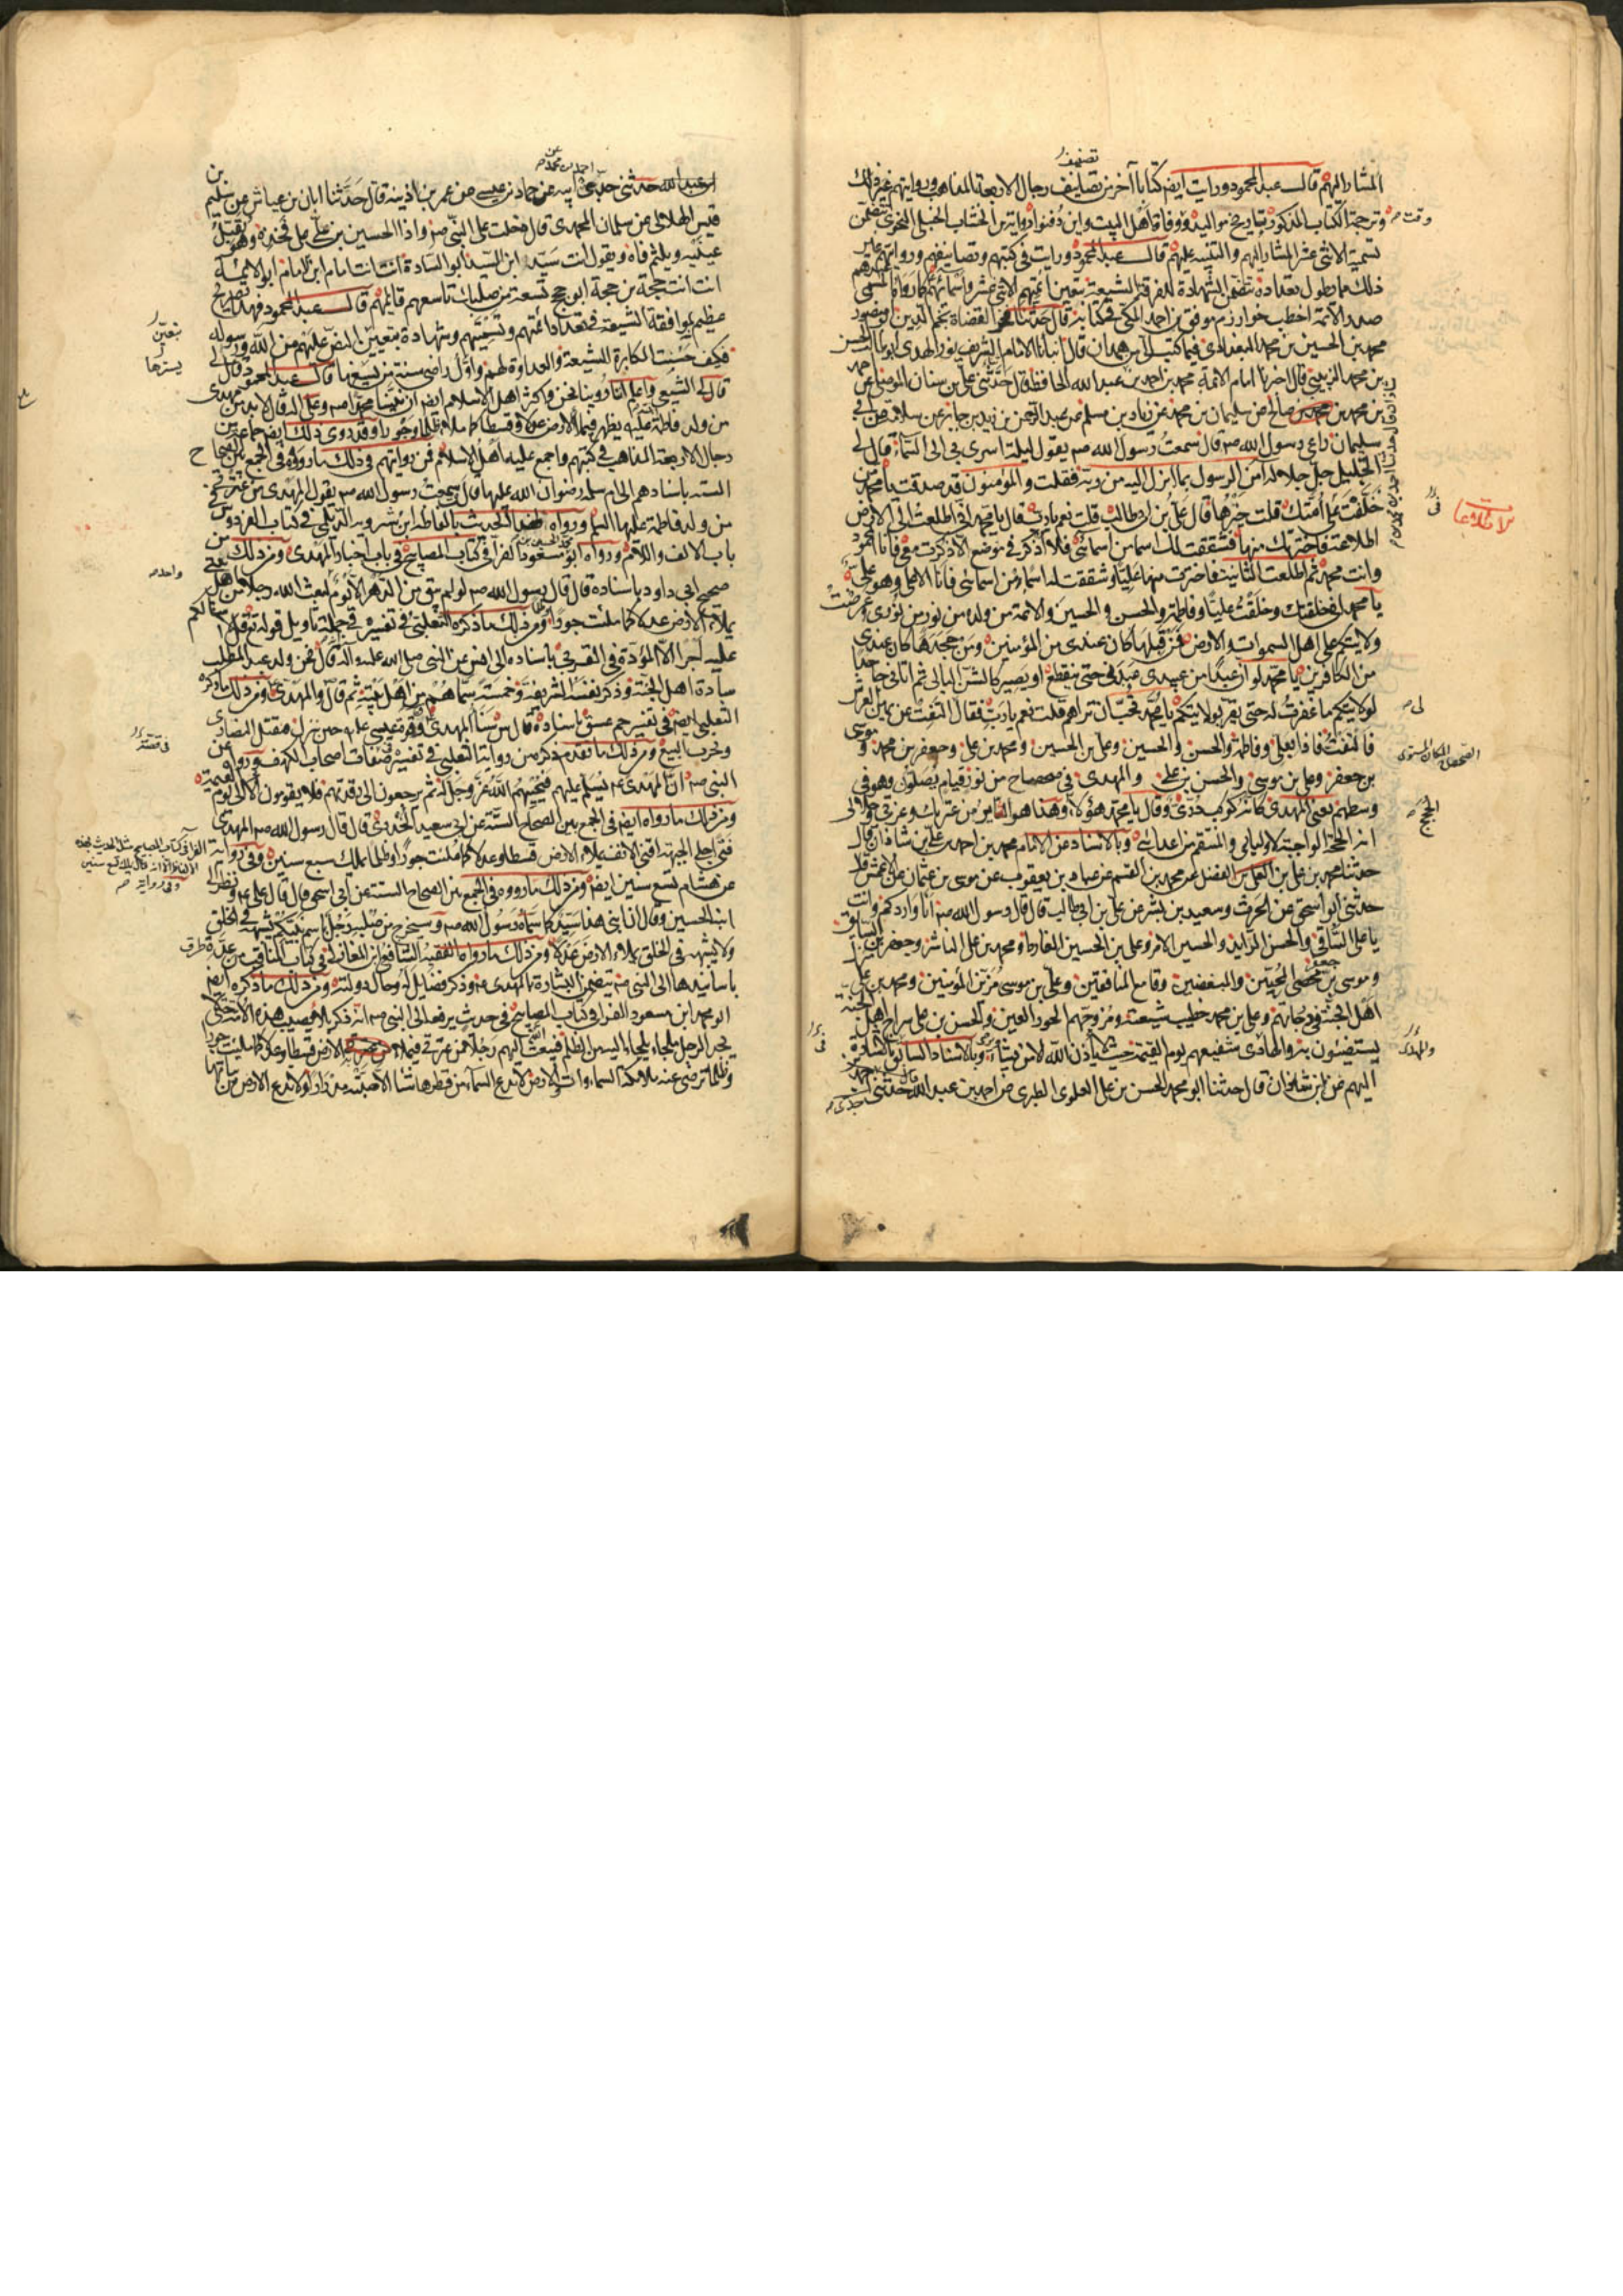 المشار اليهم قال عبد المحمود ورايت ايضا كتابا آخر من تصانيف رجال الاربعة المذاهب ورواتهم غير ذلك
وترجمة الكتاب المذكور بتاريخ مواليد ووفاة اهل البيت واين دفنوا رواية بن الخشاب الحنبلي النحوي يتضمن
تسمية الاثنى عشر المشار اليهم والتنبيه عليهم قال عبد المحمود ورايت في كتبهم وتصانيفهم ورواياتهم غير
ذلك مما يطول تعداده يتضمن الشهادة للفرقة الشيعة بتعيين ائمتهم الاثنى عشر واسمائهم كما رواه المسمى عندهم
صدر الائمة اخطب خوارزم موفق بن احمد المكي في كتابه قال حدثنا فخر القضاة نجم الدين ابو منصور
محمد بن الحسين بن محمد البغدادي فيما كتب الي من همدان قال انبانا الامام الشريف نور الهدى ابو طالب الحسن
بن محمد الزينبي قال اخبرنا امام الائمة محمد بن احمد بن عبد الله الحافظ قال حدثني علي بن سنان الموصلي عن احمد
بن محمد بن صالح عن سليمان بن محمد عن زياد بن مسلم عن عبد الرحمن بن زيد بن جابر عن سلامة عن ابي
سليمان راعي رسول الله صم قال سمعت رسول الله صم يقول ليلة اسري بي الى السماء قال لي
الجليل جل جلاله آمن الرسول بما انزل اليه من ربه فقلت والمؤمنون قد صدقت يا محمد من
خلفت في امتك قلت خيرها قال علي بن ابي طالب قلت نعم يا رب قال يا محمد اني اطلعت الى الارض
اطلاعة فاخترتك منها فشققت لك اسما من اسمائي فلا اذكر في موضع الا ذكرت معي فانا المحمود
وانت محمد ثم اطلعت الثانية فاخترت منها عليا وشققت له اسما من اسمائي فانا الاعلى وهو علي
يا محمد اني خلقتك وخلقت عليا وفاطمة والحسن والحسين والائمة من ولده من نور من نوري وعرضت
ولايتكم على اهل السموات والارض فمن قبلها كان عندي من المؤمنين ومن جحدها كان عندي
من الكافرين يا محمد لو ان عبدا من عبيدي عبدني حتى ينقطع او يصير كالشن البالي ثم اتاني جاحدا
لولايتكم ما غفرت له حتى يقر بولايتكم يا محمد تحب ان تراهم قلت نعم يا رب فقال التفت عن يمين العرش
فالتفت فاذا بعلي وفاطمة والحسن والحسين وعلي بن الحسين ومحمد بن علي وجعفر بن محمد وموسى
بن جعفر وعلي بن موسى والحسن بن علي والمهدي في ضحضاح من نور قيام يصلون وهو في
وسطهم يعني المهدي كانه كوكب دري وقال يا محمد هؤلاء وهذا هو الثاير من عترتك وعزتي وجلالي
انه الحجة الواجبة لاوليائي والمنتقم من اعدائي وبالاسناد عن الامام محمد بن احمد بن علي بن شاذان قال
حدثنا محمد بن علي بن الفضل عن محمد بن القسم عن عباد بن يعقوب عن موسى بن عثمان عن الاعمش قال
حدثني ابو اسحق عن الحرث وسعيد بن بشر عن علي بن ابي طالب قال قال رسول الله صم انا واردكم وانت
يا علي الساقي والحسن الذايد والحسين الامر وعلي بن الحسين الفارط ومحمد بن علي الناشر وجعفر بن محمد السائق
وموسى بن جعفر محصي المحبين والمبغضين وقامع المنافقين وعلي بن موسى مزين المؤمنين ومحمد بن علي منزل
اهل الجنة في درجاتهم وعلي بن محمد خطيب شيعته ومزوجهم الحور العين والحسن بن علي سراج اهل الجنة
يستضيئون به والهادي شفيعهم يوم القيمة حيث لا ياذن الله الا لمن يشاء ويرضى وبالاسناد السابق المشار
اليهم عن ابن شاذان قال حدثنا ابو محمد الحسن بن علي العلوي الطبري عن احمد بن عبد الله قال حدثني جدي
تصنيف
وقت
لى
الضحضاح المكان المستوى
الحجج
والمهدي
بن عبد الله حدثني جدي عن ابيه عن حماد بن عيسى عن عمر بن اذينة قال حدثنا ابان بن عياش عن سليم بن
قيس الهلالي عن سلمان المحمدي قال دخلت على النبي صم واذا الحسين بن علي على فخذه وهو يقبل
عينيه ويلثم فاه ويقول انت سيد ابن السيد ابو السادة انت امام ابن الامام ابو الائمة
انت حجة بن حجة ابو حجج تسعة من صلبك تاسعهم قائمهم قال عبد المحمود فهذا تصريح
عظيم بموافقة الشيعة في تعداد ائمتهم وتسميتهم وشهادة بتعيين النص عليهم من الله ورسوله
فكيف حسنت المكابرة للشيعة والعداوة لهم واول راضي سنة من يسيرها قال عبد المحمود وقال لي
قال لي الشيعي واعلم اننا روينا نحن واكثر اهل الاسلام ايضا ان نبينا محمدا صم وعلى اله قال لابد من مهدي
من ولد فاطمة عليها يظهر فيملأ الارض عدلا وقسطا كما ملئت ظلما وجورا وقد روى ذلك ايضا جماعة من
رجال الاربعة المذاهب في كتبهم واجمع عليه اهل الاسلام فمن رواياتهم في ذلك ما رووه في الجمع بين الصحاح
الستة باسنادهم الى ام سلمة رضوان الله عليها قال سمعت رسول الله صم يقول المهدي من عترتي
من ولد فاطمة عليها السلم ورواه ايضا الحديث بالفاظه ابن شرويه الديلمي في كتاب الفردوس من
باب الالف واللام ورواه ابو محمد الحسين بن مسعود الفرا في كتاب المصابيح في باب اخبار المهدي ومن ذلك
صحيح ابي داود باسناده قال قال رسول الله صم لو لم يبق من الدهر الا يوم لبعث الله رجلا من اهل بيتي
يملأ الارض عدلا كما ملئت جورا ومن ذلك ما ذكره الثعلبي في تفسيره في جملة تاويل قوله تع قل لا اسالكم
عليه اجرا الا المودة في القربى باسناده الى انس عن النبي صلى الله عليه واله قال نحن ولد عبد المطلب
سادة اهل الجنة وذكر نفسه الشريفة وخمسة سماهم من اهل بيته ثم قال والمهدي ومن ذلك ما ذكره
الثعلبي ايضا في تفسير حم عسق باسناده قال س سنا المهدي وق قوة عيسى عم حين نزل فيقتل النصارى
ويخرب البيع ومن ذلك ما تقدم ذكره من رواية الثعلبي في تفسيره في صفات اصحاب الكهف ورواه عن
النبي صم ان المهدي عم يسلم عليهم فيحييهم الله عز وجل له ثم يرجعون الى رقدتهم فلا يقومون الا الى يوم القيمة
ومن ذلك ما رواه ايضا في الجمع بين الصحاح الستة عن ابي سعيد الخدري قال قال رسول الله صم المهدي
فتى اجلى الجبهة اقنى الانف يملأ الارض قسطا وعدلا كما ملئت جورا وظلما يملك سبع سنين وفي رواية
عن هشام تسع سنين ايضا ومن ذلك ما رووه في الجمع بين الصحاح الستة عن ابي اسحق قال قال علي عم ونظر الى
ابنه الحسين وقال ان ابني هذا سيد كما سماه رسول الله صم وسيخرج من صلبه رجل باسم نبيكم يشبهه في الخلق
ولا يشبهه في الخلق يملأ الارض عدلا ومن ذلك ما رواه الفقيه الشافعي ابن المغازلي في كتاب المناقب من عدة طرق
باسانيدها الى النبي صم يتضمن البشارة بالمهدي عم وذكر فضايله وحال دولته ومن ذلك ما ذكره ايضا
ابو محمد ابن مسعود الفرا في كتاب المصابيح في حديث يرفعه الى النبي صم انه ذكر بلاء يصيب هذه الامة حتى لا
يجد الرجل ملجاء يلجاء اليه من الظلم فيبعث الله اليهم رجلا من عترتي فيملأ به الارض قسطا وعدلا كما ملئت جورا
وظلما يرضى عنه ملائكة السماء والارض لا يدع السماء من قطرها شيئا الا صبته مدرارا ولا يدع الارض من نباتها
بتعيين
يسيرها
واحد
في قصة